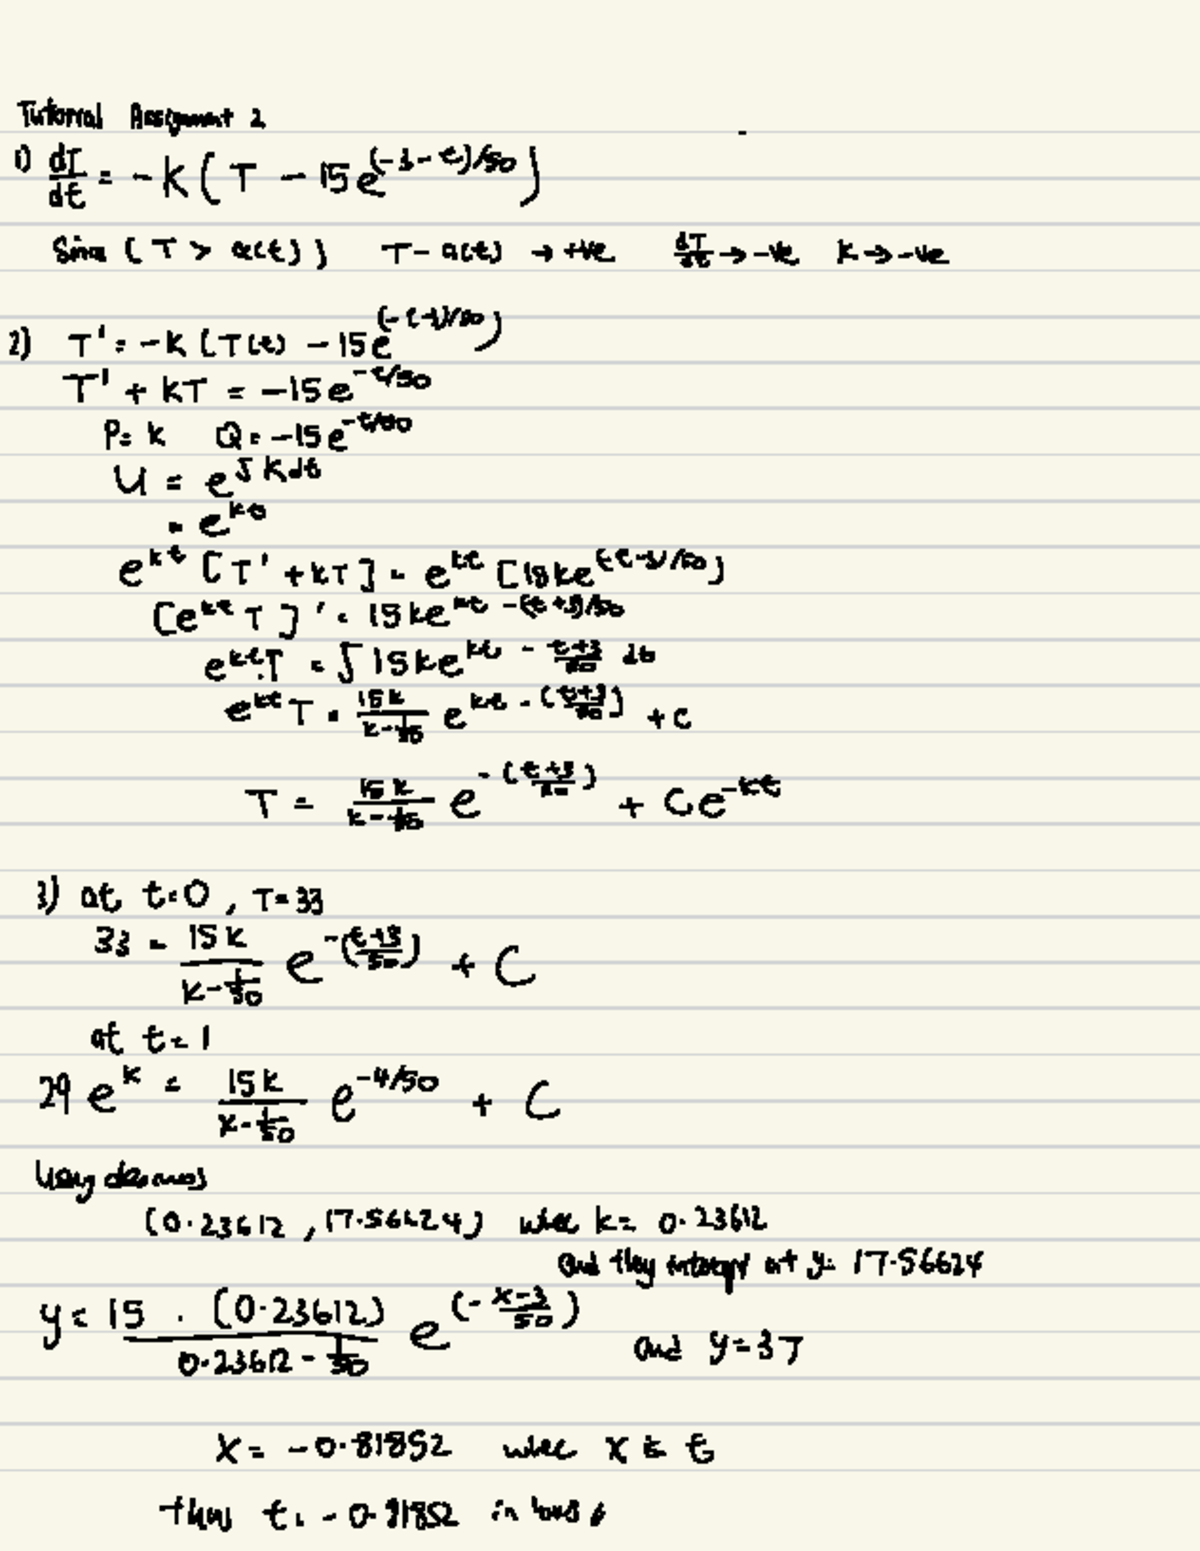 Tutorial Assignment 2
1) dT/dt = -k(T - 15e^(-3-t)/50)
Since (T > a(t)) T - a(t) → +ve dT/dt → -ve k → -ve
2) T' = -k(T(t) - 15e^(-t-3)/50)
T' + kT = -15e^-t/50
P = k Q = -15e^-t/50
U = e^∫kdt
= e^kt
e^kt [T' + kT] = e^kt [15ke^(-t-3)/50]
[e^kt T]' = 15ke^kt-(t+3)/50
e^kt.T = ∫15ke^kt-(t+3)/50 dt
e^kt T = 15k/(k-1/50) e^kt-((t+3)/50) + C
T = 15k/(k-1/50) e^-((t+3)/50) + Ce^-kt
3) at t=0, T=33
33 = 15k/(k-1/50) e^-((t+3)/50) + C
at t=1
29e^k = 15k/(k-1/50) e^-4/50 + C
Using desmos
(0.23612, 17.56624) k = 0.23612
and they at y = 17.56624
y = 15 . (0.23612)/(0.23612-1/50) e^((-x-3)/50) and y=37
x = -0.81852 x t
thus t = -0.81852 in